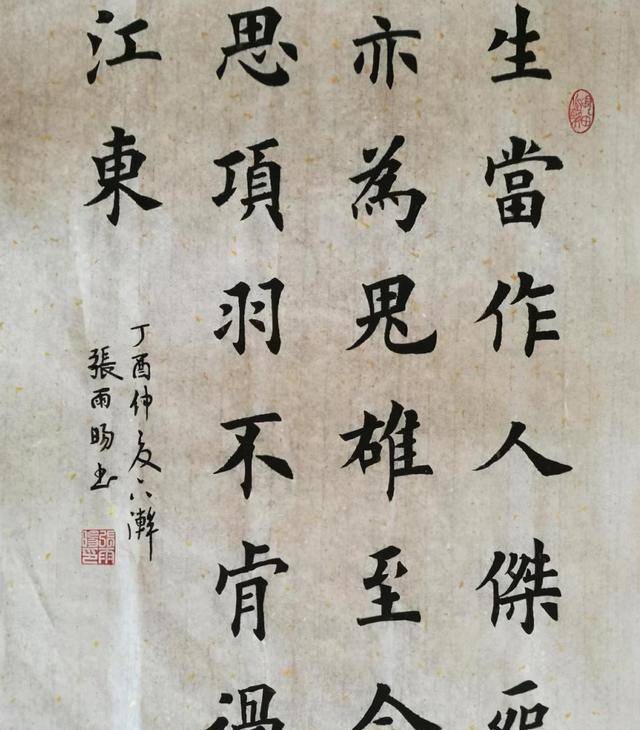 生當作人傑死
亦為鬼雄至今
思項羽不肯過
江東
丁酉仲夏下澣
張雨暘書
張雨暘印